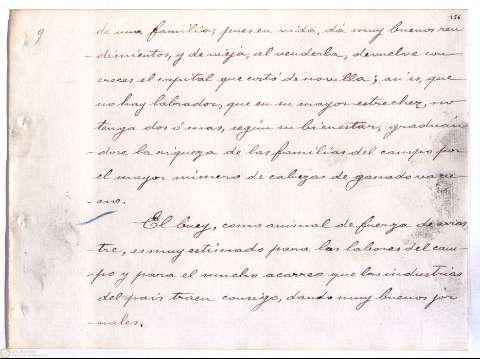 156
9
de una familia; pues en vida, dá muy buenos ren
-dimientos, y de vieja, al venderla, devuelve con
-creces el capital que costó de novilla; así es, que
-no hay labrador, que en su mayor estrechez, no
-tenga dos ó mas, según su bienestar; graduán
-dose la riqueza de las familias del campo por
-el mayor número de cabezas de ganado vacu-
-no.
El buey, como animal de fuerza de arras
-tre, es muy estimado para las labores del cam-
-po y para el mucho acarreo que las industrias
del país traen consigo, dando muy buenos jor
-nales.